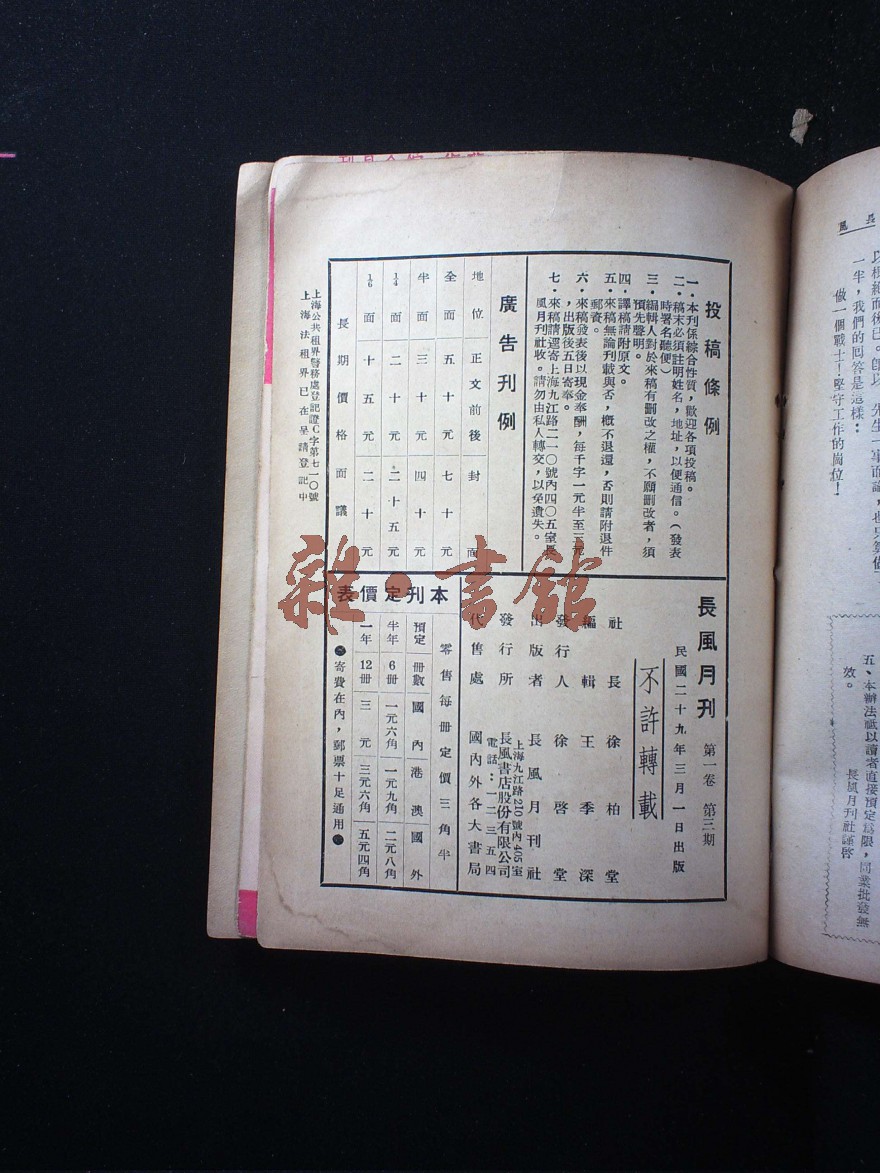 投稿條例
一．本刊係綜合性質，歡迎各項投稿。
二．稿末必須註明姓名，地址，以便通信。（發表
時署名聽便）
三．編輯人對於來稿有刪改之權，不願刪改者，須
預先聲明。
四．譯稿請附原文。
五．來稿無論刊載與否，概不退還，否則請附退件
郵資。
六．來稿發表後以現金奉酬，每千字一元半至三元
，出版後五日寄奉。
七．來稿請逕寄上海九江路二一〇號內四〇五室長
風月刊社收。請勿由私人轉交，以免遺失。
廣告刊例
地位 正文前後 封面
全面 五十元 七十元
半面 三十元 四十元
1/4面 二十元 二十五元
1/6面 十五元 二十元
長期價格面議
上海公共租界警務處登記證C字第七一〇號
上海法租界已在呈請登記中
長風月刊 第一卷 第三期
民國二十九年三月一日出版
不許轉載
社長 徐柏堂
編輯 王季深
發行人 徐啓堂
出版者 長風月刊社
上海九江路210號內405室
發行所 長風書店股份有限公司
電話：一二三五四
代售處 國內外各大書局
本刊定價表
零售每册定價三角半
預定 册數 國內 港澳 國外
半年 6册 一元六角 一元九角 二元八角
一年 12册 三元 三元六角 五元四角
寄費在內，郵票十足通用
雜·書館
長風
一半，我們的回答是這樣：
做一個戰士！堅守工作的崗位！
五、本辦法祗以讀者直接預定爲限，同業批發無
效。
長風月刊社謹啓